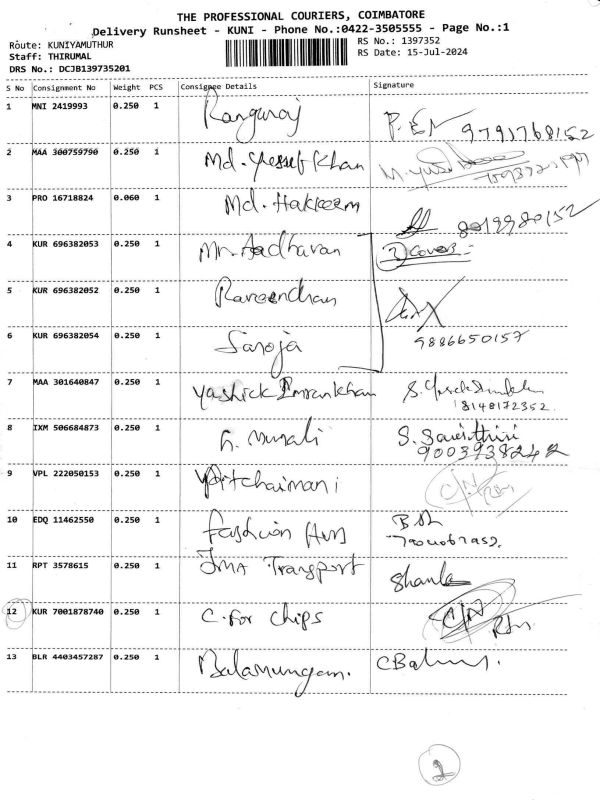 THE PROFESSIONAL COURIERS, COIMBATORE
Delivery Runsheet - KUNI - Phone No.:0422-3505555 - Page No.:1
Route: KUNIYAMUTHUR RS No.: 1397352
Staff: THIRUMAL RS Date: 15-Jul-2024
DRS No.: DCJB139735201
S No Consignment No Weight PCS Consignee Details Signature
1 MNI 2419993 0.250 1 Ranguraj 9791768152
2 MAA 300759790 0.250 1 Md. Yessuf Khan
3 PRO 16718824 0.060 1 Md. Hakkeem
4 KUR 696382053 0.250 1 Mr. Aadhavan
5 KUR 696382052 0.250 1 Raveendran
6 KUR 696382054 0.250 1 Saroja 9886650157
7 MAA 301640847 0.250 1 Yashick Imrankhan
8148172352
8 IXM 506684873 0.250 1 G. Murali S. Savithiri
9003938242
9 VPL 222050153 0.250 1 Pitchaimani C/N
10 EDQ 11462550 0.250 1 Fashion
11 RPT 3578615 0.250 1 JMA Transport
12 KUR 7001878740 0.250 1 C. For Chips C/N
13 BLR 4403457287 0.250 1 Balamurugan.